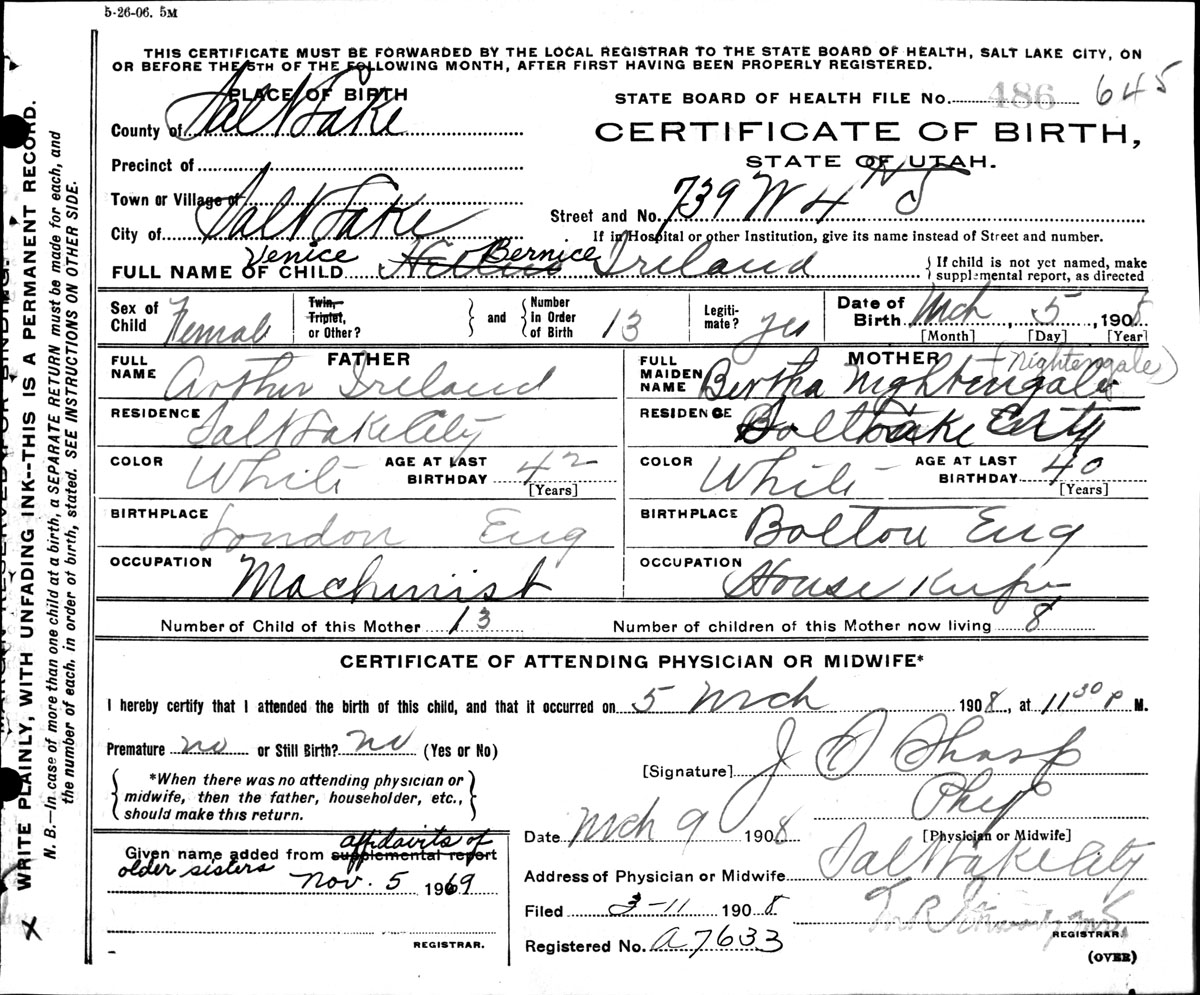 5-26-06. 5M
THIS CERTIFICATE MUST BE FORWARDED BY THE LOCAL REGISTRAR TO THE STATE BOARD OF HEALTH, SALT LAKE CITY, ON
OR BEFORE THE 5TH OF THE FOLLOWING MONTH, AFTER FIRST HAVING BEEN PROPERLY REGISTERED.
PLACE OF BIRTH
County of Salt Lake
Precinct of
Town or Village of
City of Salt Lake
STATE BOARD OF HEALTH FILE No. 486 645
CERTIFICATE OF BIRTH,
STATE OF UTAH.
Street and No. 739 W 4
If in Hospital or other Institution, give its name instead of Street and number.
Venice Bernice
FULL NAME OF CHILD Ireland
If child is not yet named, make
supplemental report, as directed
Sex of Child Female
Twin, Triplet, or Other?
and
Number In Order of Birth 13
Legiti-mate? yes
Date of Birth Mch 5, 1908
[Month] [Day] [Year]
FATHER
FULL NAME Arthur Ireland
RESIDENCE Salt Lake City
COLOR White AGE AT LAST BIRTHDAY 42
[Years]
BIRTHPLACE London Eng
OCCUPATION Machinist
MOTHER (Nightengale)
FULL MAIDEN NAME Bertha Nightengale
RESIDENCE Salt Lake City
COLOR White AGE AT LAST BIRTHDAY 40
[Years]
BIRTHPLACE Bolton Eng
OCCUPATION House
Number of Child of this Mother 13 Number of children of this Mother now living 8
CERTIFICATE OF ATTENDING PHYSICIAN OR MIDWIFE*
I hereby certify that I attended the birth of this child, and that it occurred on 5 Mch 1908, at 11 30 P M.
Premature no or Still Birth? no (Yes or No)
*When there was no attending physician or
midwife, then the father, householder, etc.,
should make this return.
[Signature] J O Sharp
Phys
[Physician or Midwife]
Date Mch 9 1908
Address of Physician or Midwife Salt Lake City
Filed 3-11 1908
Registered No. A7633
REGISTRAR.
(OVER)
affidavits of
Given name added from supplemental report
older sisters
Nov. 5 1969
REGISTRAR.
WRITE PLAINLY, WITH UNFADING INK--THIS IS A PERMANENT RECORD.
N. B.—In case of more than one child at a birth, a SEPARATE RETURN must be made for each, and
the number of each, in order of birth, stated. SEE INSTRUCTIONS ON OTHER SIDE.
X